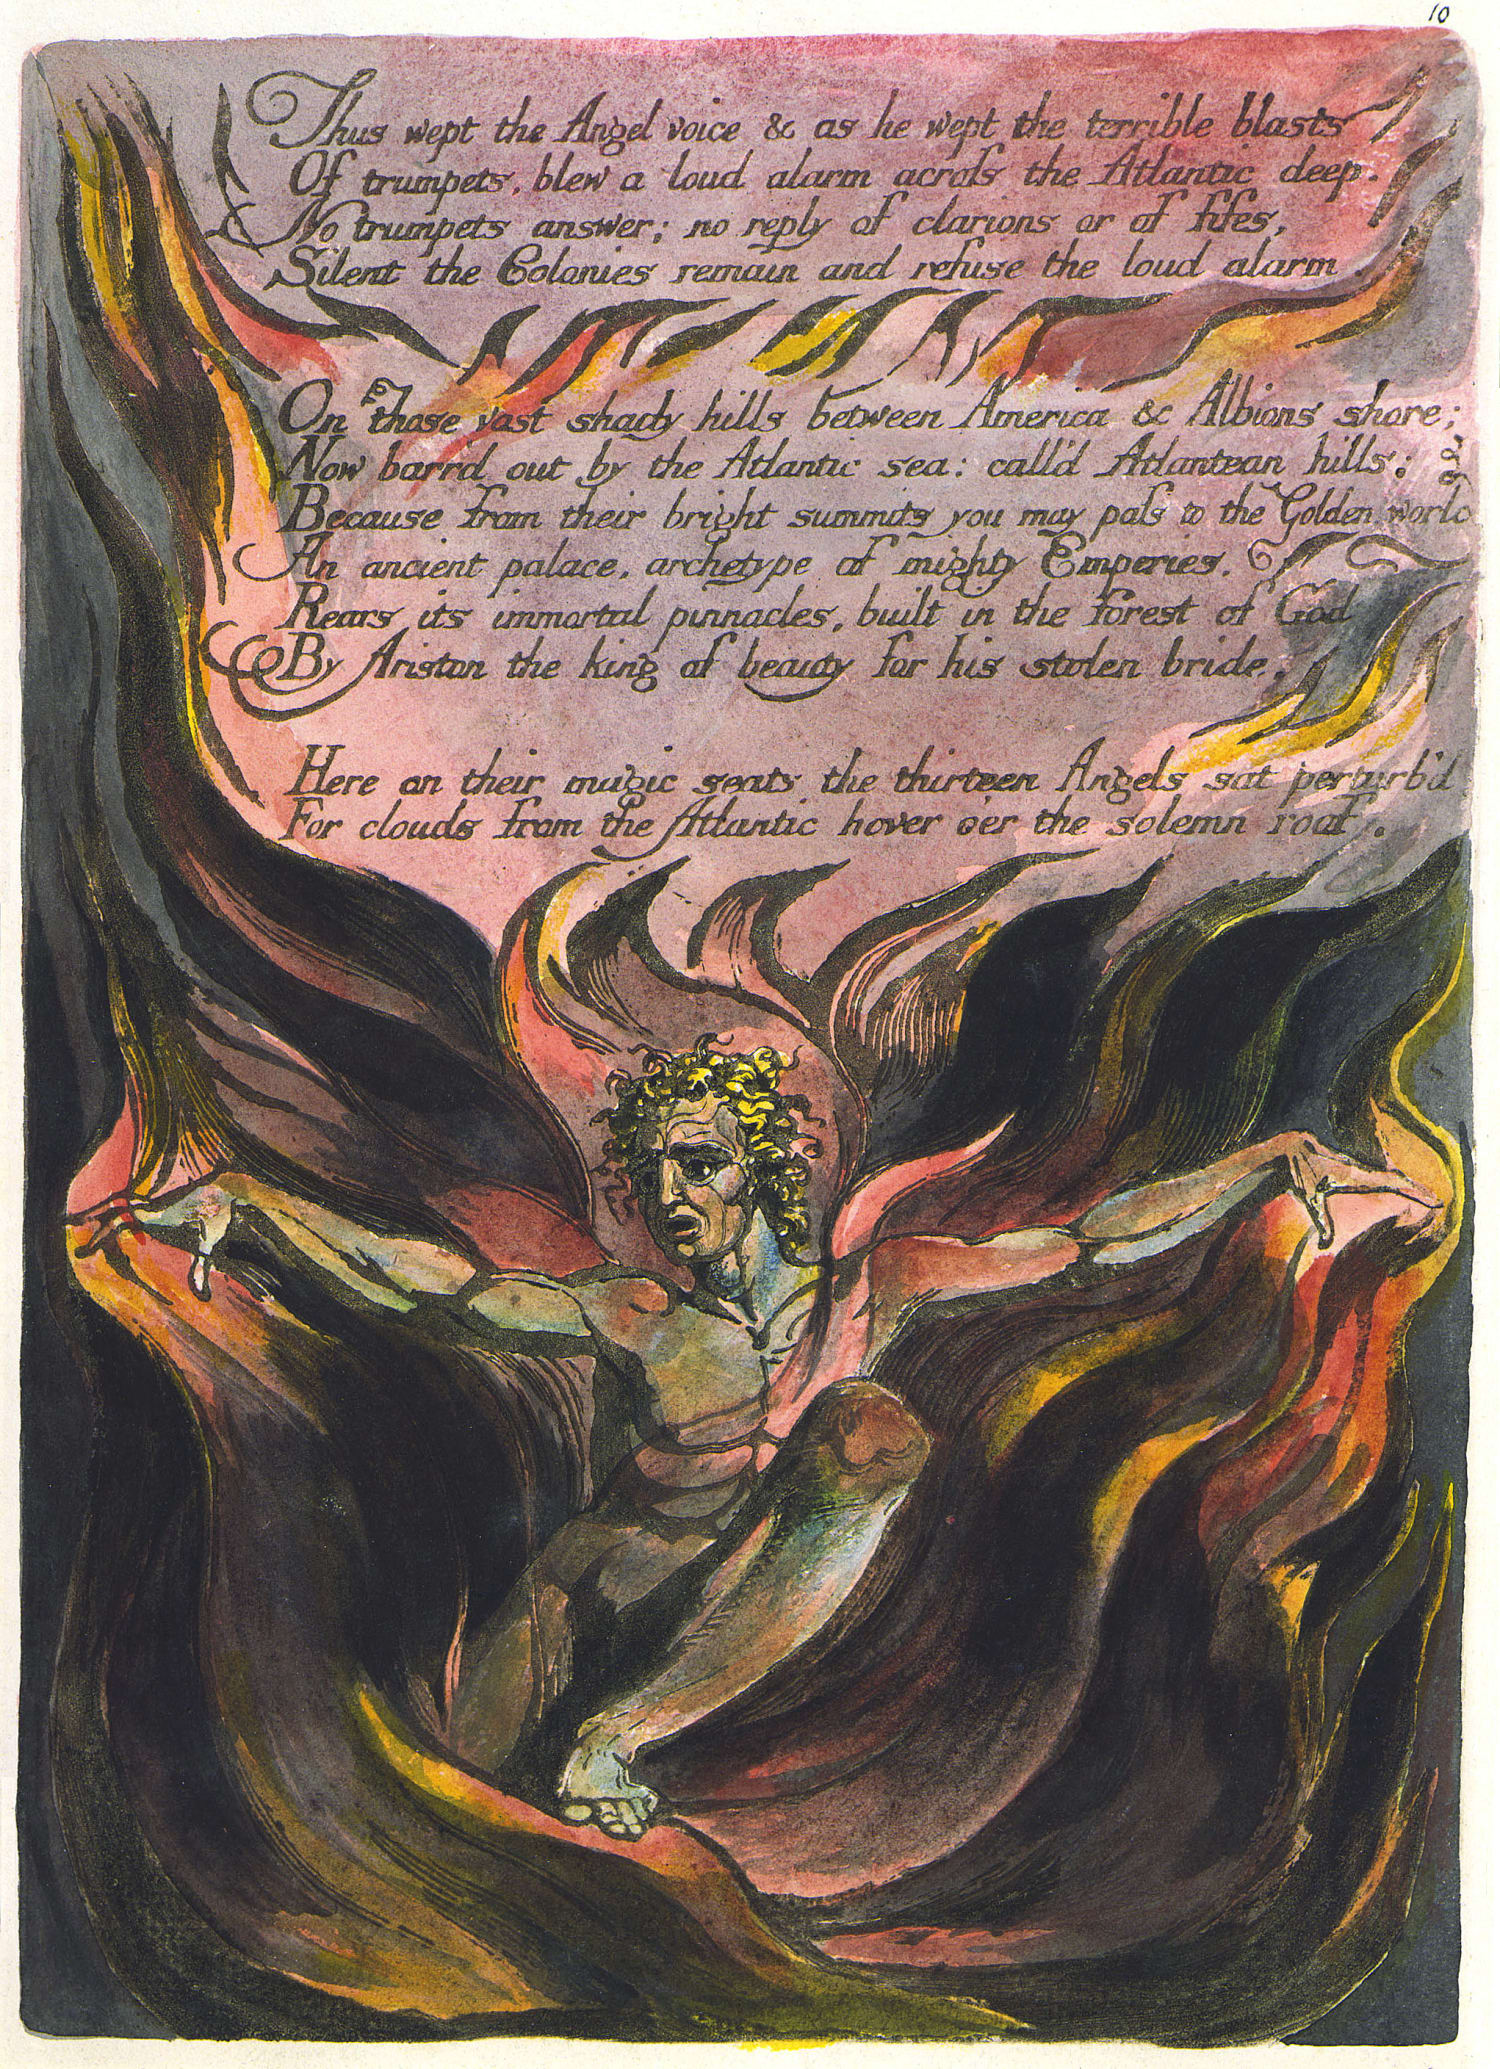 10
Thus wept the Angel voice & as he wept the terrible blasts
Of trumpets, blew a loud alarm acroſs the Atlantic deep.
No trumpets answer; no reply of clarions or of fifes,
Silent the Colonies remain and refuse the loud alarm.
On those vast shady hills between America & Albions shore;
Now barr'd out by the Atlantic sea: call'd Atlantean hills:
Because from their bright summits you may paſs to the Golden world
An ancient palace, archetype of mighty Emperies,
Rears its immortal pinnacles, built in the forest of God
By Ariston the king of beauty for his stolen bride.
Here on their magic seats the thirteen Angels sat perturb'd
For clouds from the Atlantic hover o'er the solemn roof.